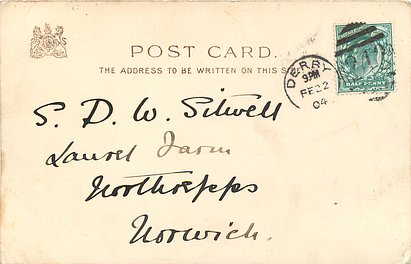 POST CARD.
THE ADDRESS TO BE WRITTEN ON THIS S
DERBY
9PM
FE 22
04
HALF PENNY
S. D. W. Sitwell
Laurel Farm
Northrepps
Norwich.